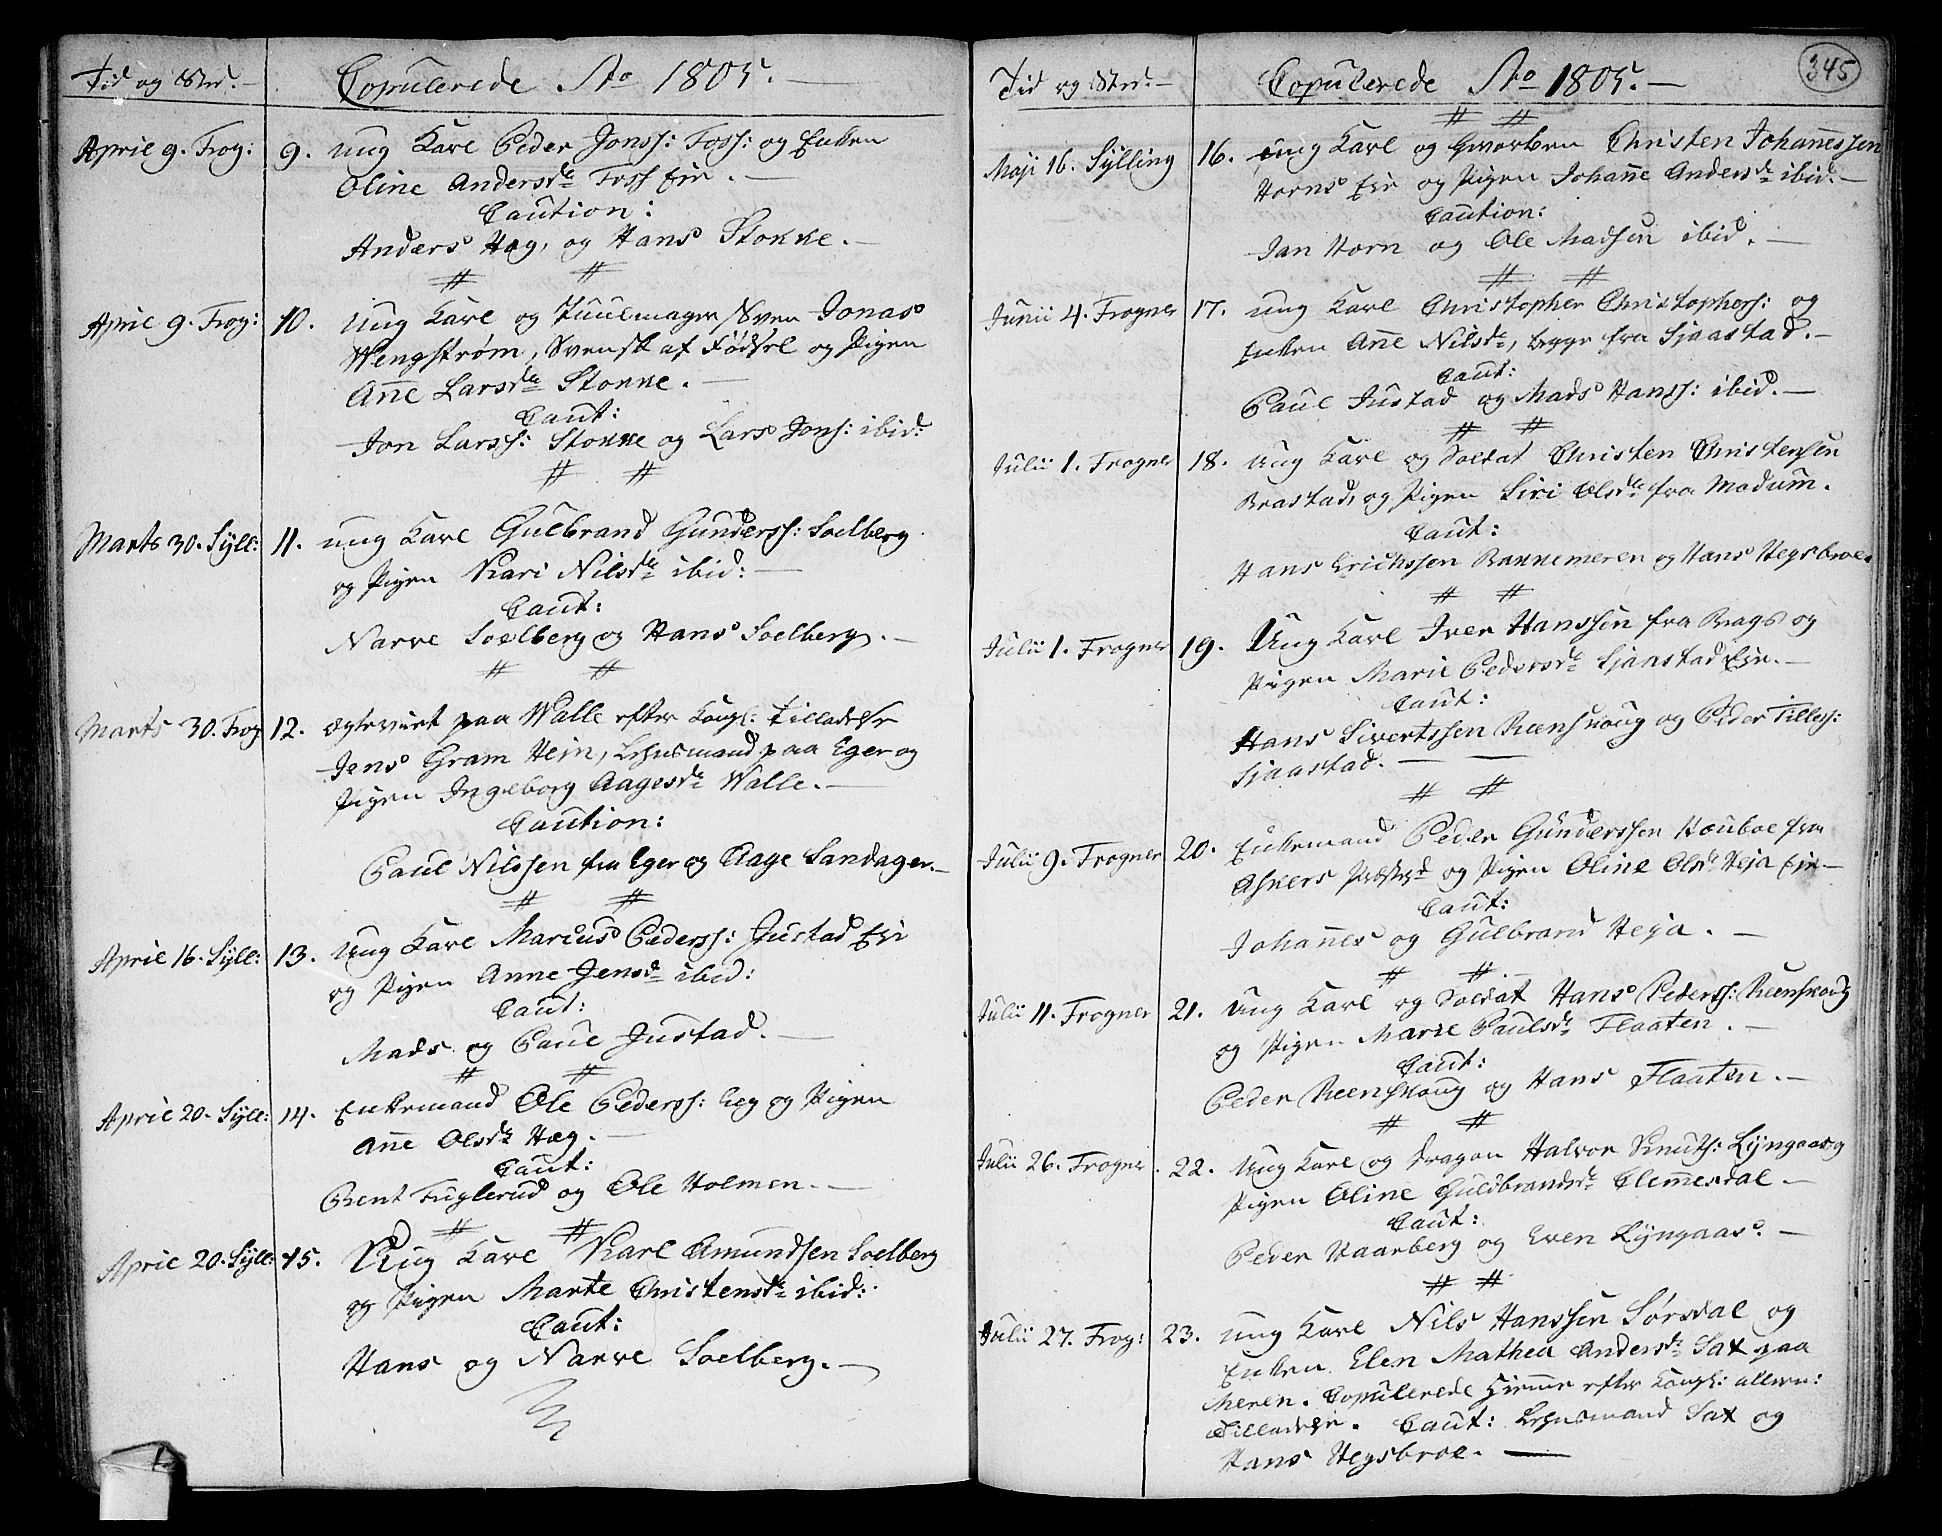 Tid og Sted.
Copulerede Ao 1805.
April 9. Frog: 9. ung Karl Peder Jonss: Foss: og Enken
Oline Andersdr Foss Eie.
Caution:
Anders Hæg, og Hans Stokke.
April 9. Frog: 10. Ung Karl og Hiulmager Sven Jonas
Wengstrøm, Svensk af Fødsel og Pigen
Anne Larsdr Stokke.
Caut:
Jon Larss: Stokke og Lars Jons: ibid:
Marts 30. Syll: 11. ung Karl Gulbrand Gunderss: Soelberg
og Pigen Kari Nilsdr ibid:
Caut:
Narve Soelberg og Hans Soelberg.
Marts 30. Frog 12. paa Walle efter Kongl: Tilladelse
Jens Gram Hein, Lehnsmand paa Eger og
Pigen Ingeborg Aagesdr Walle.
Caution:
Paul Nilssen fra Eger og Aage Sandager.
April 16. Syll: 13. ung Karl Marcus Pederss: Justad Eie
og Pigen Anne Jensdr ibid:
Caut:
Mads og Paul Justad.
April 20. Syll: 14. Enkemand Ole Pederss: Eeg og Pigen
Anne Olsdr Hæg.
Caut:
Bent Fuglerud og Ole Holmen.
April 20. Syll: 15. Ung Karl Karl Amundsen Soelberg
og Pigen Marte Christensdr ibid:
Caut:
Hans og Narve Soelberg.
345
Tid og Sted.
Copulerede Ao 1805.
Maji 16. Sylling 16. ung Karl og Gevorben Christen Johannessen
Horns Eie og Pigen Johanne Andersdr ibid.
Caution:
Jan Horn og Ole Madsen ibid.
Junii 4. Frogner 17. ung Karl Christopher Christophers: og
Enken Anne Nilsdr, begge fra Sjaastad.
Caut:
Paul Justad og Mads Hanss: ibid.
Julii 1. Frogner 18. ung Karl og Soldat Christen Christensen
Brastad, og Pigen Siri Olsdr fra Modum.
Caut:
Hans Erichssen Bakkemeren og Hans Hegsbroe.
Julii 1. Frogner 19. Ung Karl Iver Hanssen fra Brags og
Pigen Marie Pedersdr Sjaastad Eie.
Caut:
Hans Sivertssen Reenskoug og Peder Tilless:
Sjaastad.
Julii 9. Frogner 20. Enkemand Peder Gunderssen Houboe fra
Askers Præstegd og Pigen Oline Olsdr Heja Eie
Caut:
Johannes og Gulbrand Heja.
Julii 11. Frogner 21. Ung Karl og Soldat Hans Pederss: Reenskoug
og Pigen Marie Paulsdr Flaaten.
Caut:
Peder Reenskoug og Hans Flaaten.
Julii 26. Frogner 22. Ung Karl og Dragon Halvor Knuts: Lyngaas og
Pigen Oline Guldbrandsdr Clemmesdal.
Caut:
Peder Haarberg og Even Lyngaas.
Julii 27. Frog: 23. ung Karl Nils Hanssen Sørsdal og
Enken Elen Mathea Andersdr Sax paa
Meren. Copulerede hiemme efter Kongl: allern:
Tilladelse. Caut: Lehnsmand Sax og
Hans Hegsbroe.